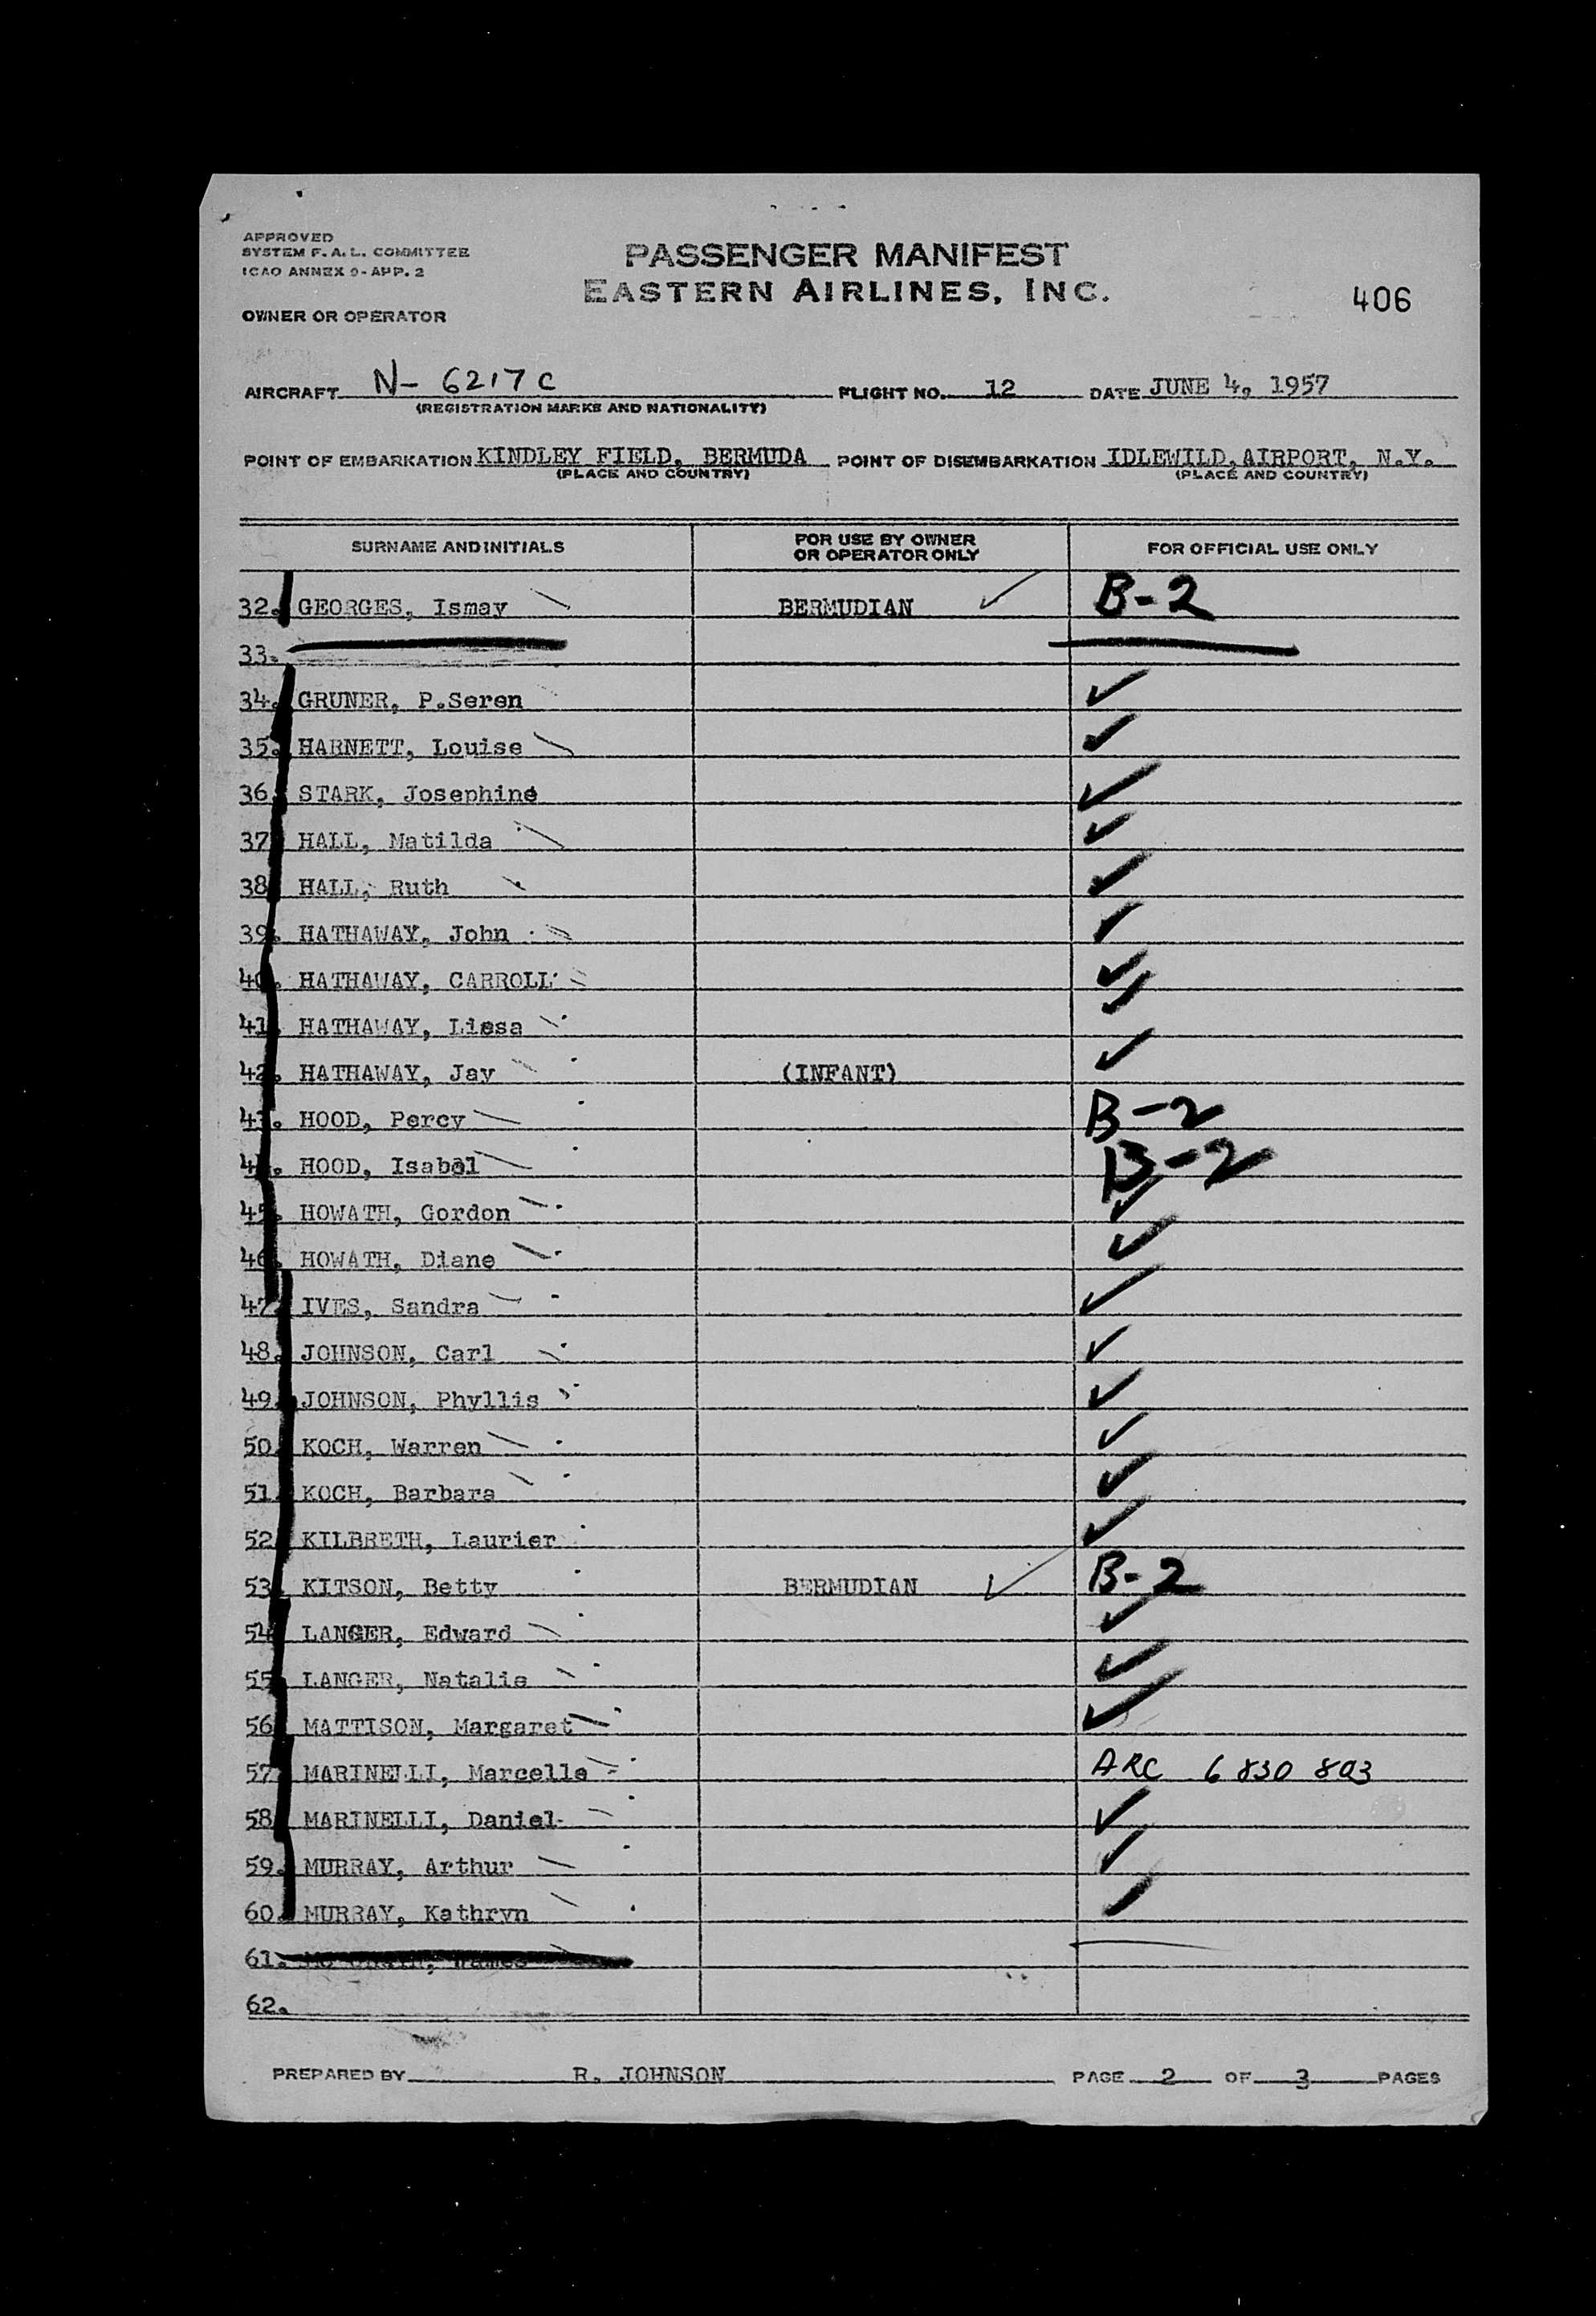 APPROVED
SYSTEM F.A.L. COMMITTEE
ICAO ANNEX 9-APP. 2
PASSENGER MANIFEST
EASTERN AIRLINES, INC.
406
OWNER OR OPERATOR
AIRCRAFT N- 6217C FLIGHT NO. 12 DATE JUNE 4, 1957
(REGISTRATION MARKS AND NATIONALITY)
POINT OF EMBARKATION KINDLEY FIELD, BERMUDA POINT OF DISEMBARKATION IDLEWILD, AIRPORT, N.Y.
(PLACE AND COUNTRY) (PLACE AND COUNTRY)
SURNAME AND INITIALS FOR USE BY OWNER OR OPERATOR ONLY FOR OFFICIAL USE ONLY
32. GEORGES, Ismay BERMUDIAN ✓ B-2
33.
34. GRUNER, P.Seren ✓
35. HARNETT, Louise ✓
36. STARK, Josephine ✓
37. HALL, Matilda ✓
38. HALL, Ruth ✓
39. HATHAWAY, John ✓
40. HATHAWAY, CARROLL ✓
41. HATHAWAY, Liesa ✓
42. HATHAWAY, Jay (INFANT) ✓
43. HOOD, Percy B-2
44. HOOD, Isabel B-2
45. HOWATH, Gordon ✓
46. HOWATH, Diane ✓
47. IVES, Sandra ✓
48. JOHNSON, Carl ✓
49. JOHNSON, Phyllis ✓
50. KOCH, Warren ✓
51. KOCH, Barbara ✓
52. KILBRETH, Laurier ✓
53. KITSON, Betty BERMUDIAN ✓ B-2
54. LANGER, Edward ✓
55. LANGER, Natalie ✓
56. MATTISON, Margaret ✓
57. MARINELLI, Marcelle ARC 6 830 893
58. MARINELLI, Daniel ✓
59. MURRAY, Arthur ✓
60. MURRAY, Kathryn ✓
61.
62.
PREPARED BY R. JOHNSON PAGE 2 OF 3 PAGES